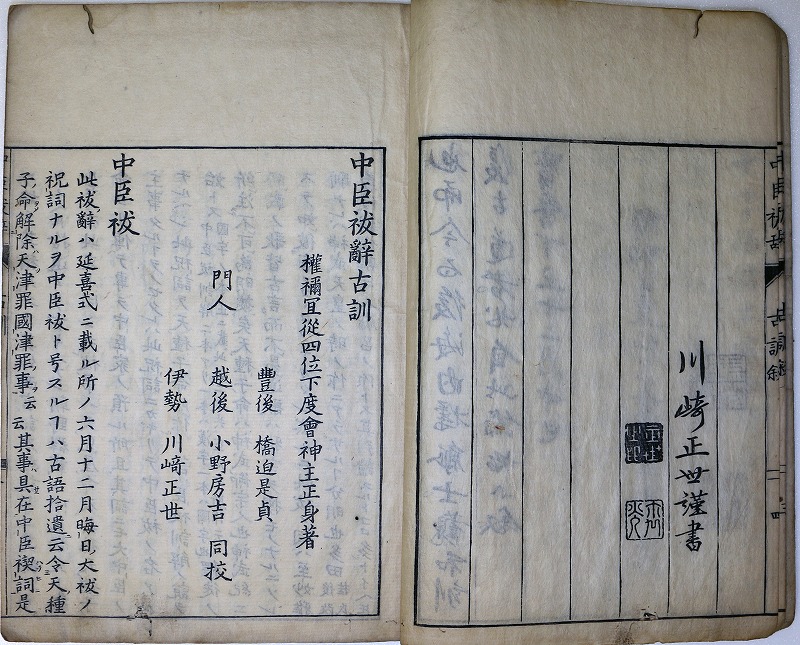 川﨑正世謹書
中臣祓辭古訓
權禰冝從四位下度會神主正身著
豐後 橋迫是貞
門人 越後 小野房吉 同挍
伊勢 川﨑正世
中臣祓
此祓辭ハ延喜式ニ載ル所ノ六月十二月晦日大祓ノ
祝詞ナルヲ中臣祓ト号スルヿハ古語拾遺云令天種
子命解除天津罪國津罪事云云其事具在中臣禊詞是